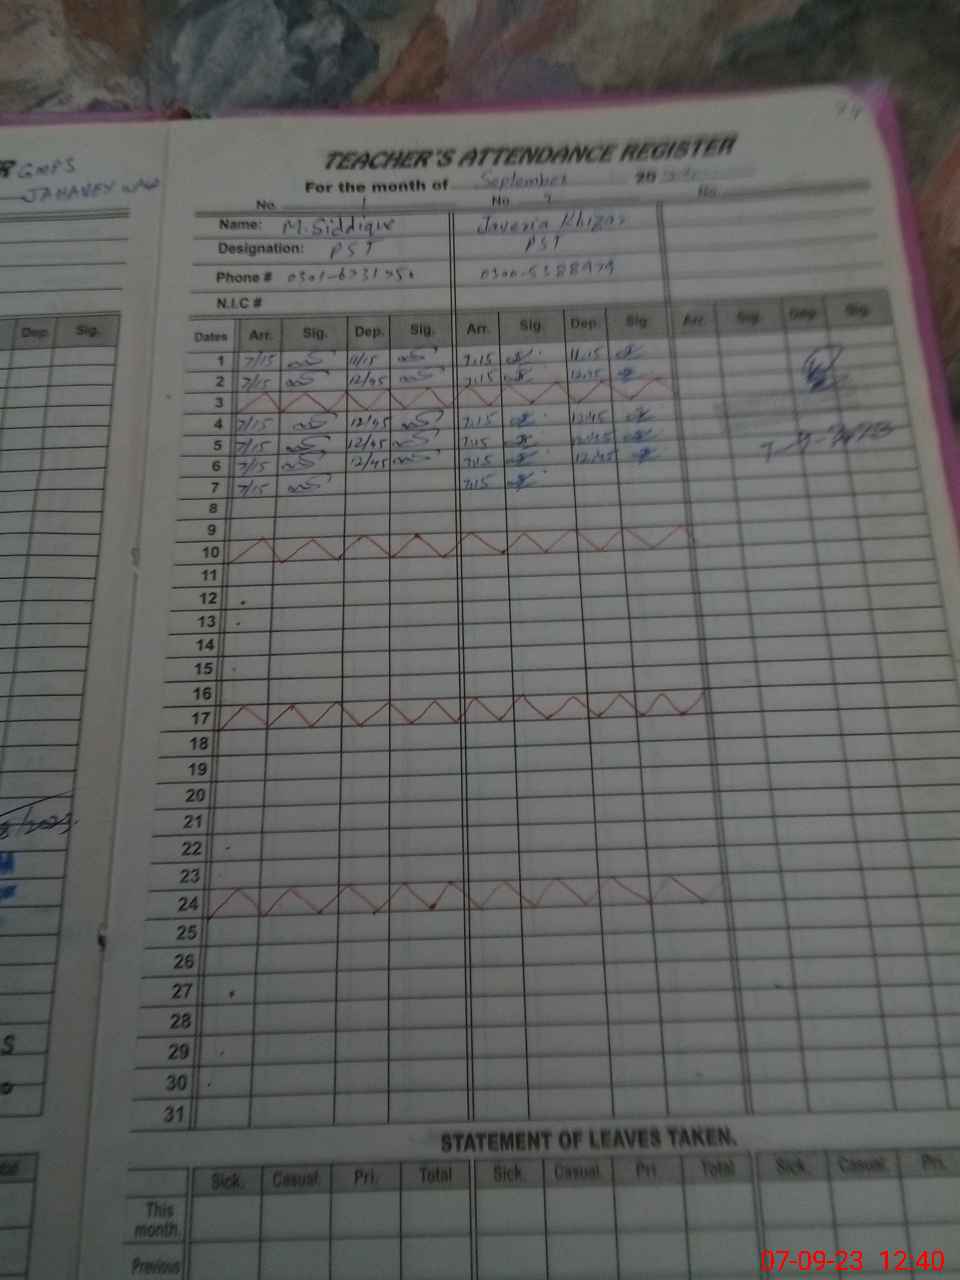 R GMPS
TEACHER'S ATTENDANCE REGISTER
For the month of September 20
No. 1 No. 2 No.
Name: M.Siddique Javeria Khizar
Designation: PST PST
Phone #
N.I.C #
Dep. Sig.
Dates Arr. Sig. Dep. Sig. Arr. Sig Dep. Sig Arr. Sig. Dep Sig.
1 7/15 11/15 7.15 11.15
2 7/15 12/45 7.15 12.45
3
4 7/15 12/45 7.15 12.45
5 7/15 12/45 7.15 12.45
6 7/15 12/45 7.15 12.45
7 7/15 7.15
8
9
10
11
12
13
14
15
16
17
18
19
20
21
22
23
24
25
26
27
28
29
30
31
STATEMENT OF LEAVES TAKEN.
Sick. Casual. Pri. Total Sick. Casual. Pri Total Sick. Casual. Pri.
This
month.
Previous
07-09-23 12:40